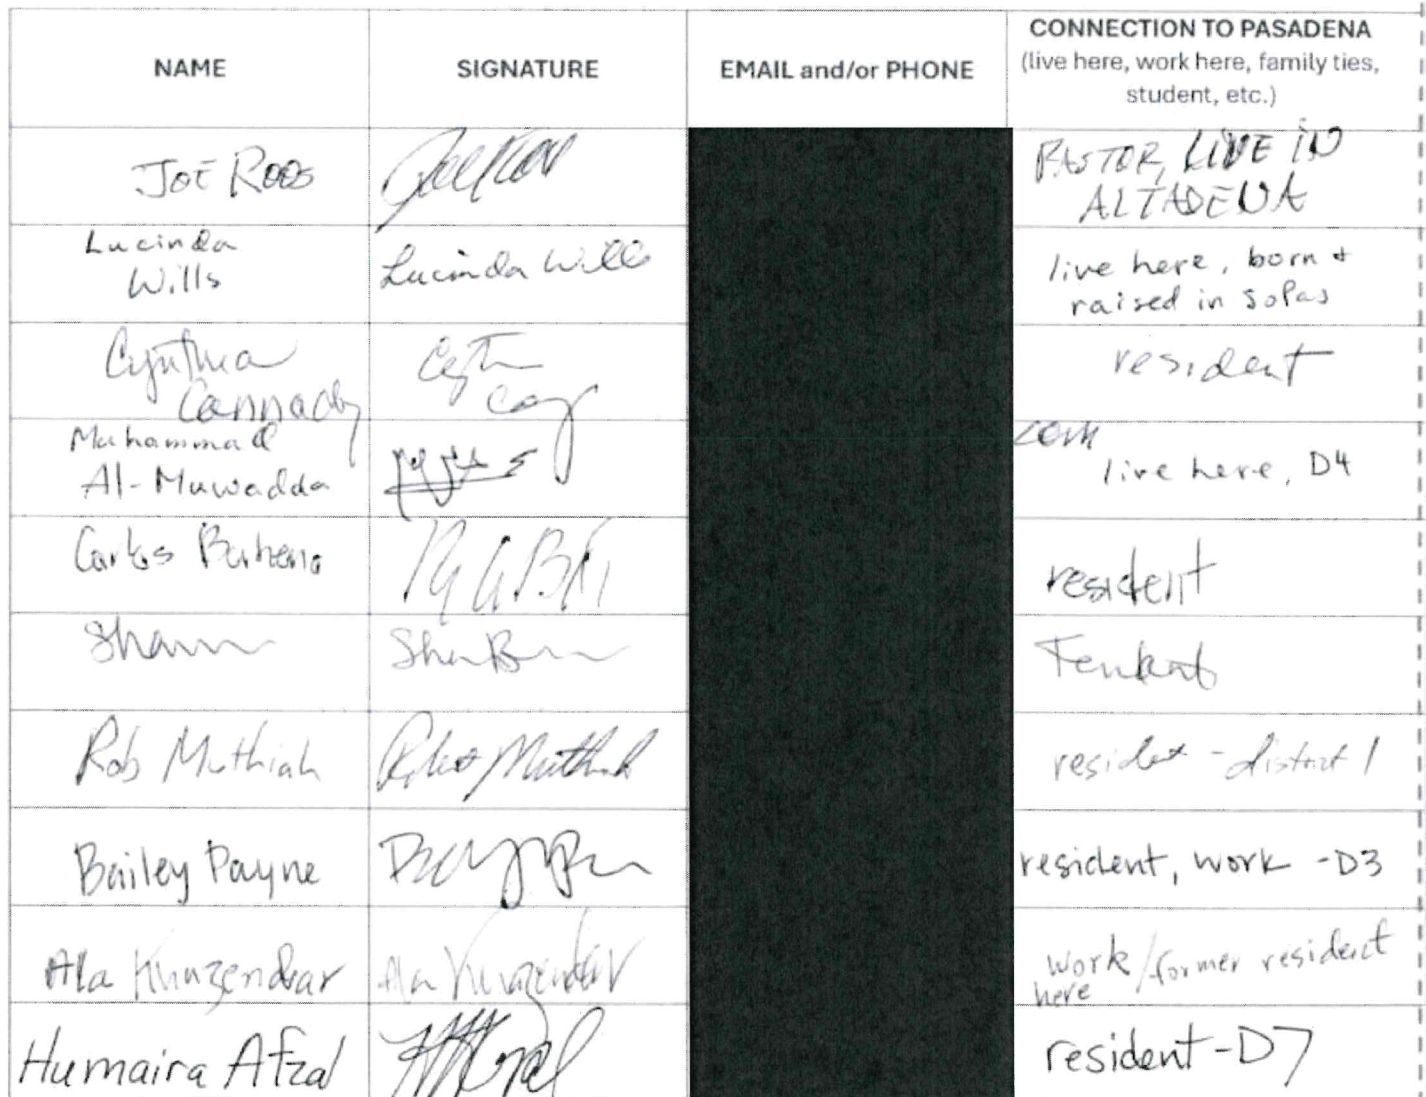 NAME SIGNATURE EMAIL and/or PHONE CONNECTION TO PASADENA
(live here, work here, family ties,
student, etc.)
JOE ROOS PASTOR, LIVE IN
ALTADENA
Lucinda
Wills Lucinda Wills live here, born +
raised in SoPas
Cynthia
Cannady resident
Muhammad
Al-Muwadda live here, D4
Carlos resident
Rob Muthiah resident - district 1
Bailey Payne resident, work - D3
Ala Khazendar Ala Khazendar work / former resident
here
Humaira Afzal resident - D7